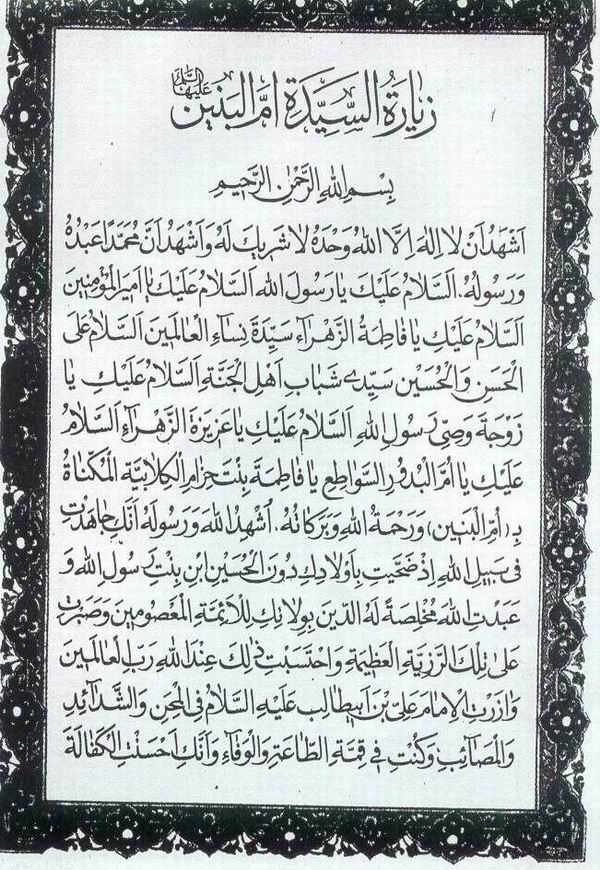 زيارة السيدة ام البنين عليها السلام
بسم الله الرحمن الرحيم
اشهد ان لا اله الا الله وحده لا شريك له واشهد ان محمدا عبده
ورسوله. السلام عليك يا رسول الله السلام عليك يا امير المؤمنين
السلام عليك يا فاطمة الزهراء سيدة نساء العالمين السلام على
الحسن والحسين سيدي شباب اهل الجنة السلام عليك يا
زوجة وصي رسول الله السلام عليك يا عزيزة الزهراء السلام
عليك يا ام البدور السواطع يا فاطمة بنت حزام الكلابية المكناة
بـ(أم البنين) ورحمة الله وبركاته. أشهد الله ورسوله أنك جاهدت
في سبيل الله إذ ضحيت بأولادك دون الحسين ابن بنت رسول الله و
عبدت الله مخلصة له الدين بولائك للأئمة المعصومين وصبرت
على تلك الرزية العظيمة واحتسبت ذلك عند الله رب العالمين
وازرت الإمام علي بن ابيطالب عليه السلام في المحن والشدائد
والمصائب وكنت في قمة الطاعة والوفاء وأنك احسنت الكفالة